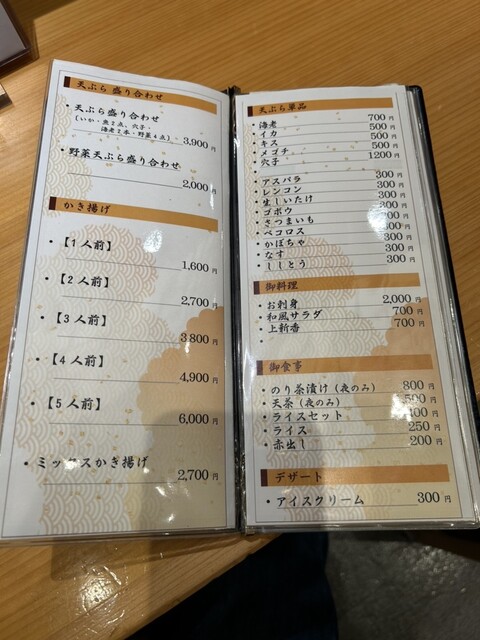 天ぷら 盛り合わせ
・天ぷら盛り合わせ
(いか・魚2点、穴子・
海老2本・野菜4点) 3,900円
・野菜天ぷら盛り合わせ
2,000円
かき揚げ
・【1人前】
1,600円
・【2人前】
2,700円
・【3人前】
3,800円
・【4人前】
4,900円
・【5人前】
6,000円
・ミックスかき揚げ
2,700円
天ぷら単品
・海老 700円
・イカ 500円
・キス 500円
・メゴチ 500円
・穴子 1200円
・アスパラ 300円
・レンコン 300円
・生しいたけ 300円
・ゴボウ 300円
・さつまいも 300円
・ペコロス 300円
・かぼちゃ 300円
・なす 300円
・ししとう 300円
御料理
・お刺身 2,000円
・和風サラダ 700円
・上新香 700円
御食事
・のり茶漬け (夜のみ) 800円
・天茶 (夜のみ) 円
・ライスセット 円
・ライス 250円
・赤出し 200円
デザート
・アイスクリーム 300円